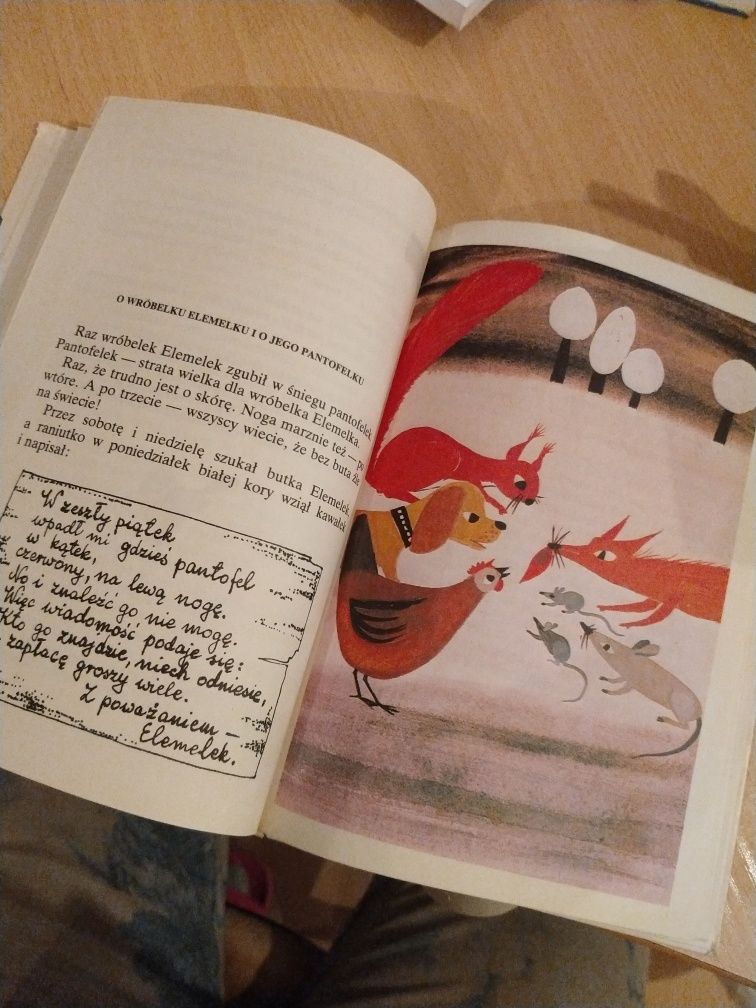 O WRÓBELKU ELEMELKU I O JEGO PANTOFELKU
Raz wróbelek Elemelek zgubił w śniegu pantofelek.
Pantofelek — strata wielka dla wróbelka Elemelka.
Raz, że trudno jest o skórę. Noga marznie też — po
wtóre. A po trzecie — wszyscy wiecie, że bez buta źle
na świecie!
Przez sobotę i niedzielę szukał butka Elemelek,
a raniutko w poniedziałek białej kory wziął kawałek
i napisał:
W zeszły piątek
wpadł mi gdzieś pantofel
w kątek,
czerwony, na lewą nogę.
No i znaleźć go nie mogę.
Więc wiadomość podaje się:
Kto go znajdzie, niech odniesie,
zapłacę groszy wiele.
Z poważaniem —
Elemelek.